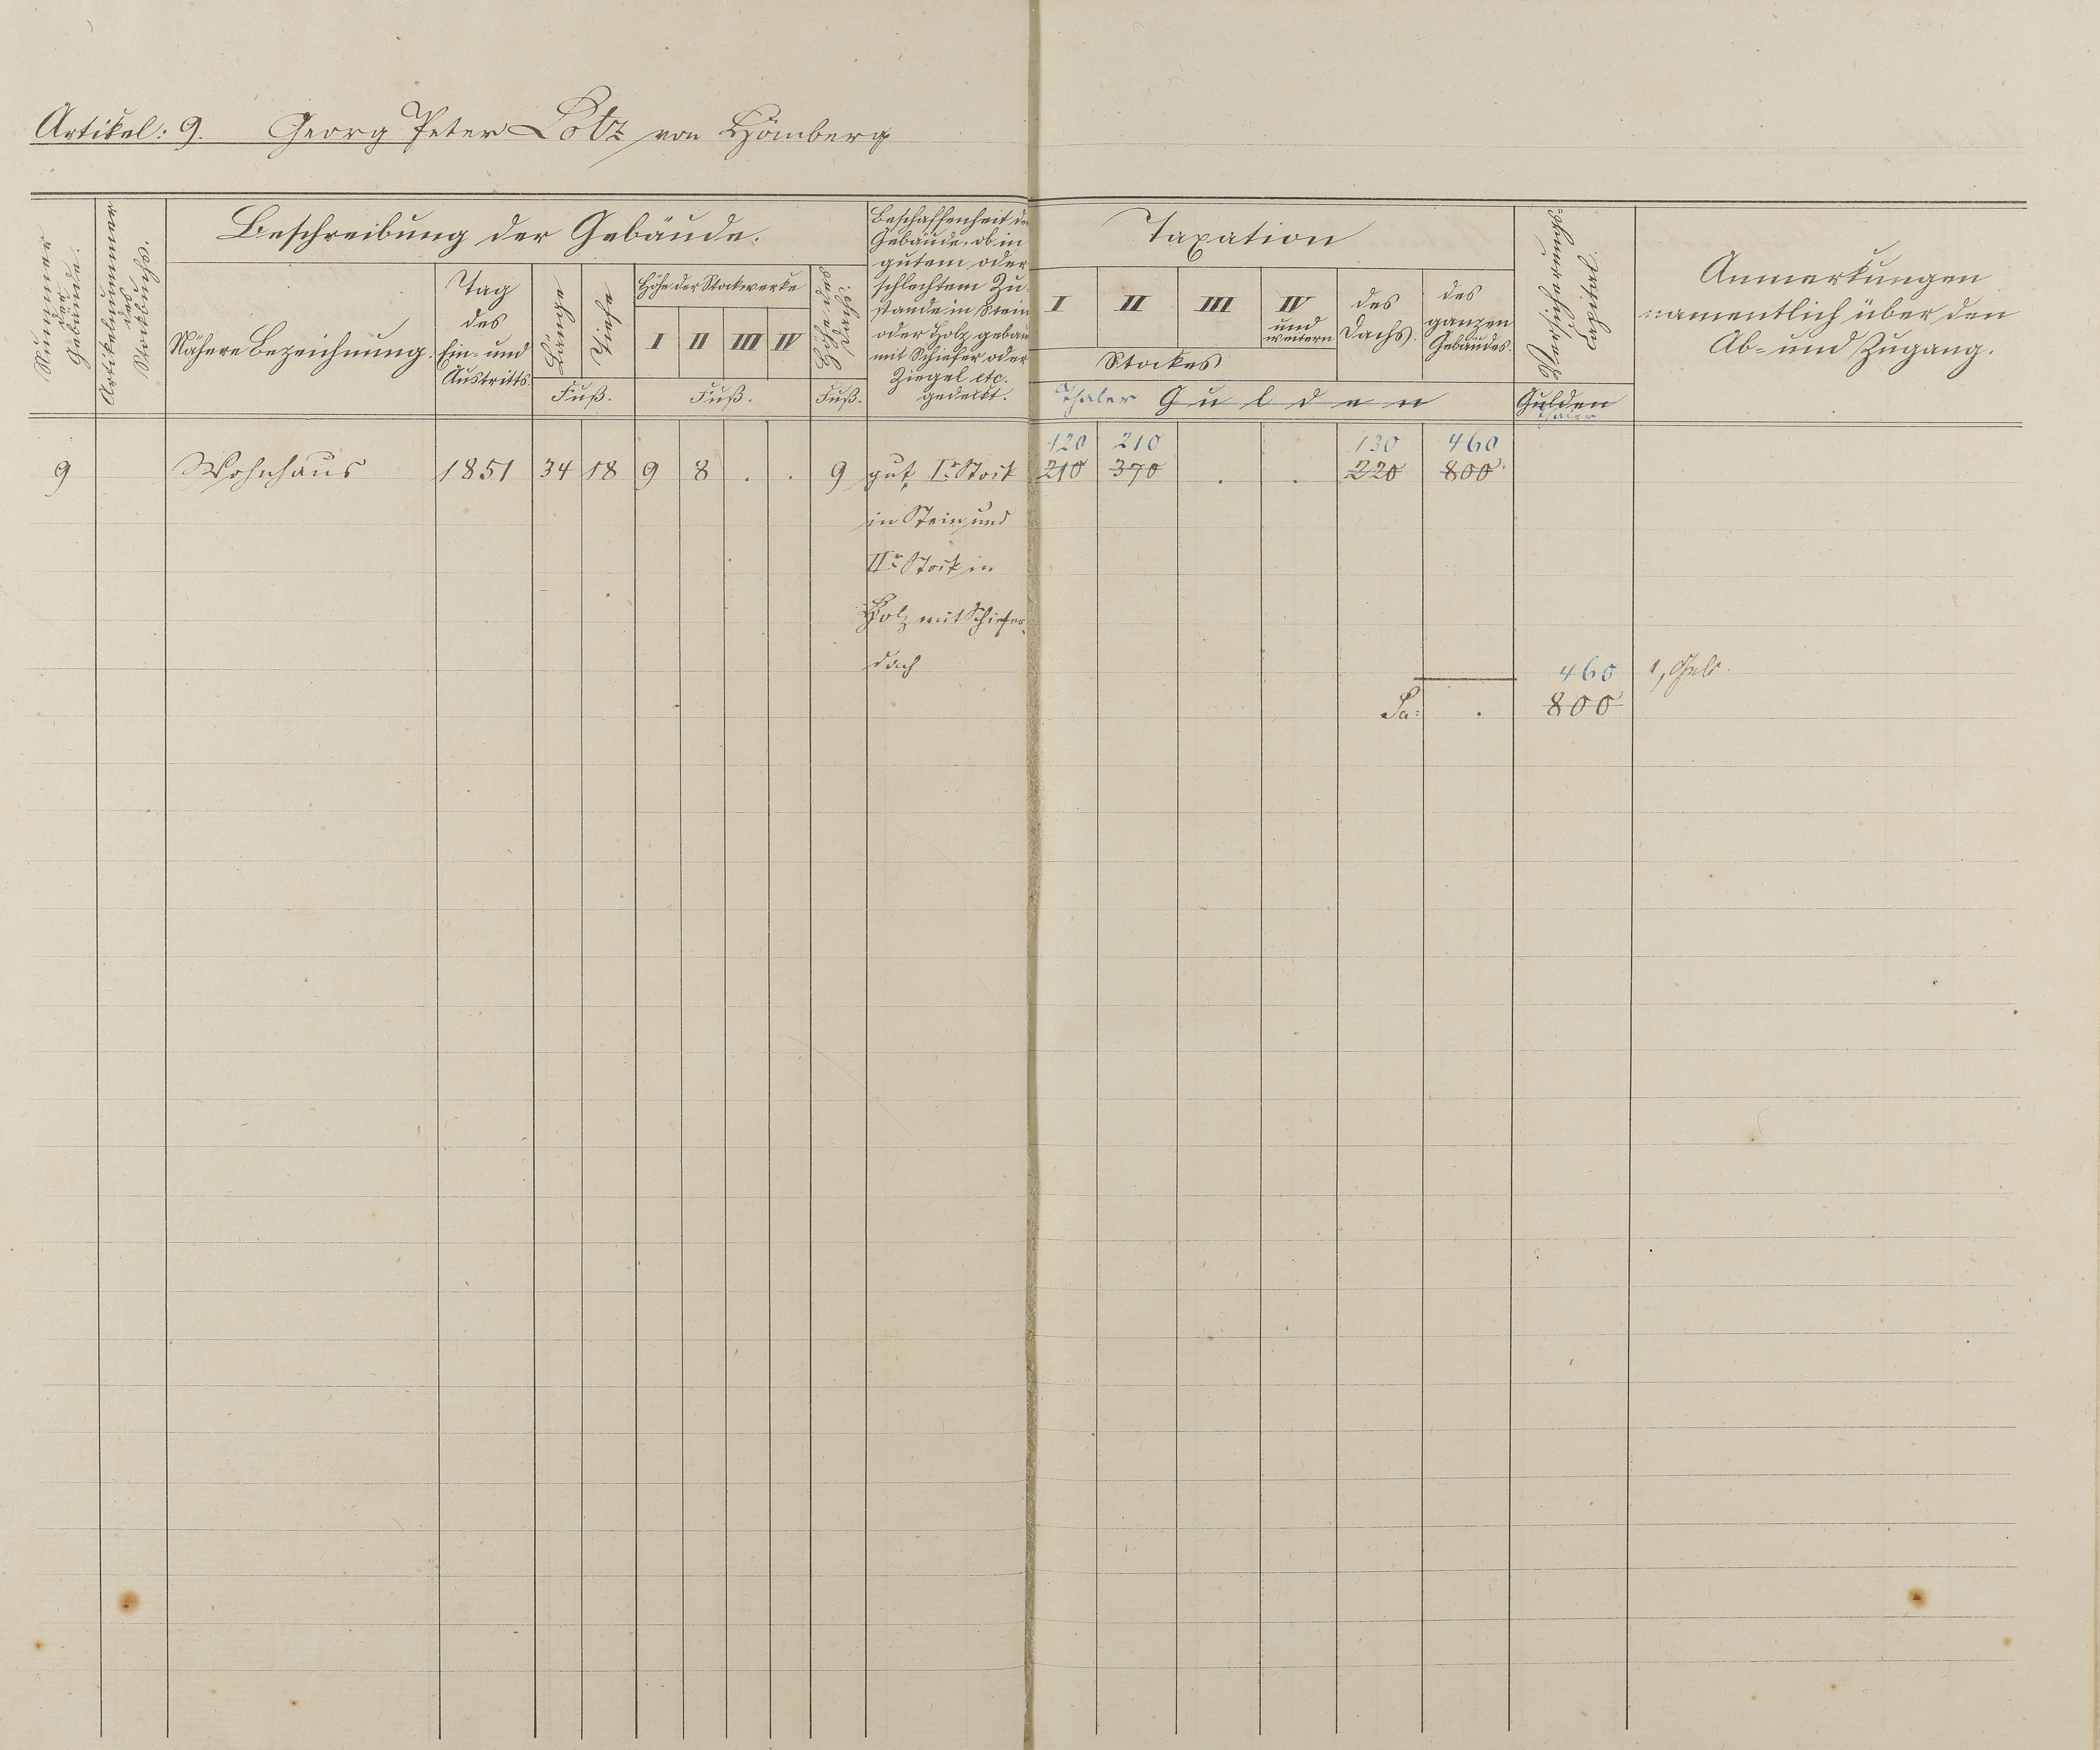 Artikel: 9. Georg Peter Lotz von Hömberg
Nummer der Gebäude.
Artikelnummer des Stockbuchs.
Beschreibung der Gebäude.
Nähere Bezeichnung.
Tag des Ein- und Austritts.
Länge
Tiefe
Fuß.
Höhe der Stockwerke
I II III IV
Fuß.
Höhe des Dachs.
Fuß.
Beschaffenheit der
Gebäude, ob in
gutem oder
schlechtem Zu-
stande in Stein
oder Holz gebaut
mit Schiefer oder
Ziegel etc.
gedeckt.
Taxation
I II III IV und weitern
Stockes
des Dachs.
des ganzen Gebäudes.
Thaler Gulden
Versicherungs-
capital
Gulden
Thaler
Anmerkungen
namentlich über den
Ab- und Zugang.
120 210 130 460
9 Wohnhaus 1851 34 18 9 8 . . 9 gut, Ir Stock 210 370 . . 220 800
in Stein und
IIr Stock in
Holz mit Schiefer-
dach
460
Sa: . 800